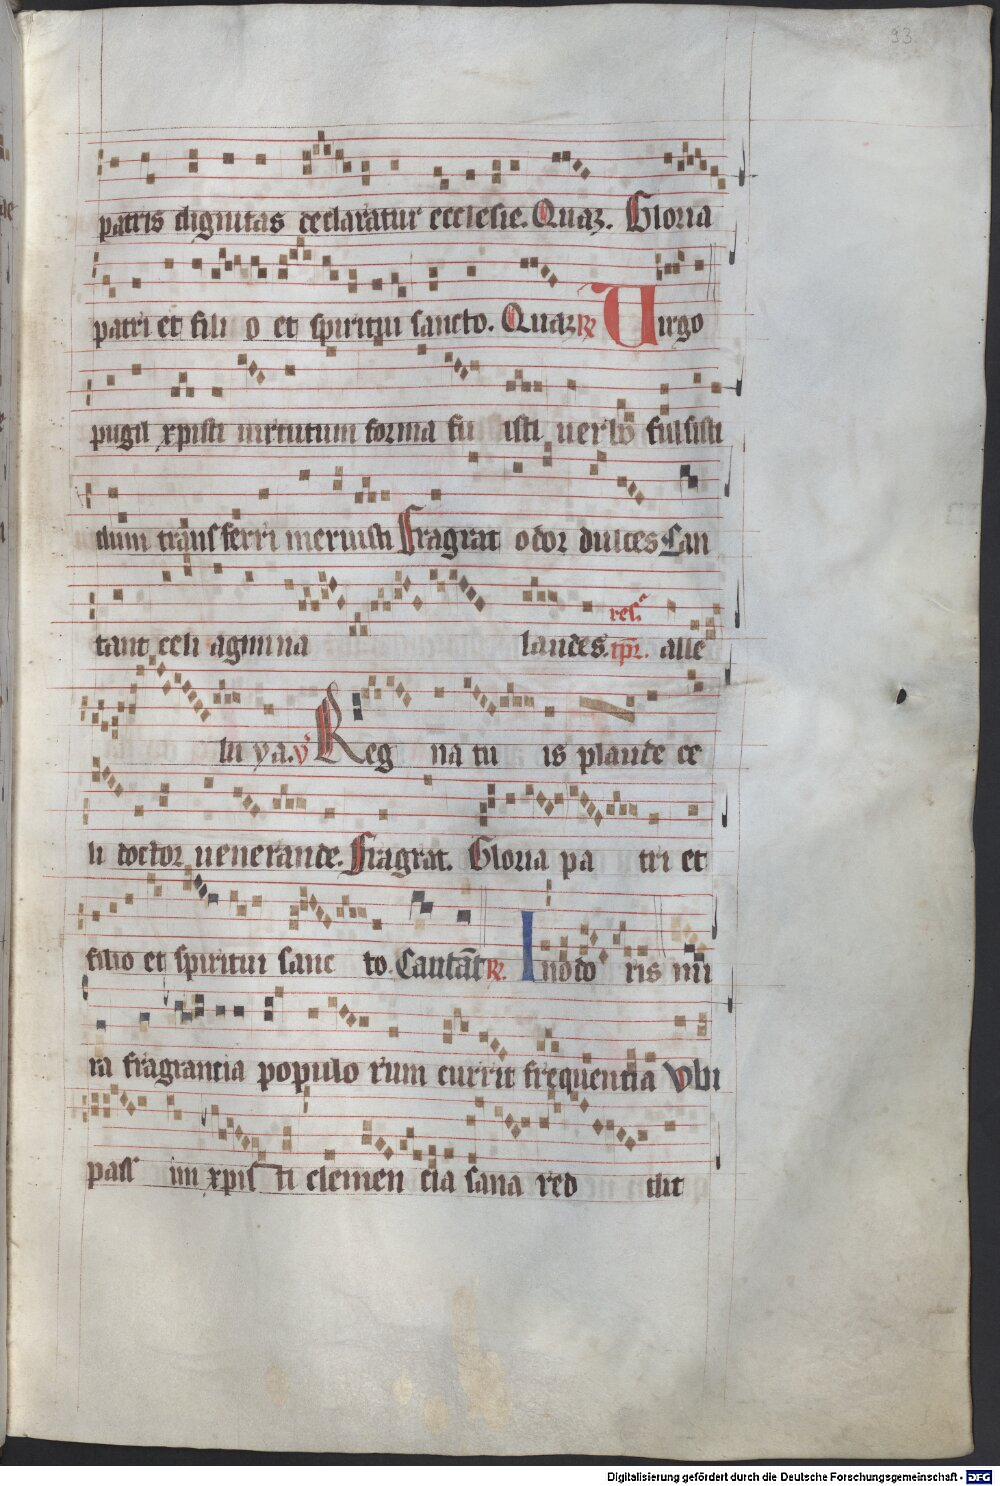 93
patris dignitas declaratur ecclesie. Quaz. Gloria
patri et fili o et spiritui sancto. Quaz R Uirgo
pugil xpisti uirtutum forma fu isti uerbo fulsisti
dum transferri meruisti Fragrat odor dulces Can
tant celi agmina laudes. alle
lu ya. v Reg na tu is plaude ce
li doctor uenerande. Fragrat. Gloria pa tri et
filio et spiritui sanc to. Cantāt R. In odo ris mi
ra fragrancia populo rum currit frequentia Vbi
pass im xpis ti clemen cia sana red dit
Digitalisierung gefördert durch die Deutsche Forschungsgemeinschaft - DFG